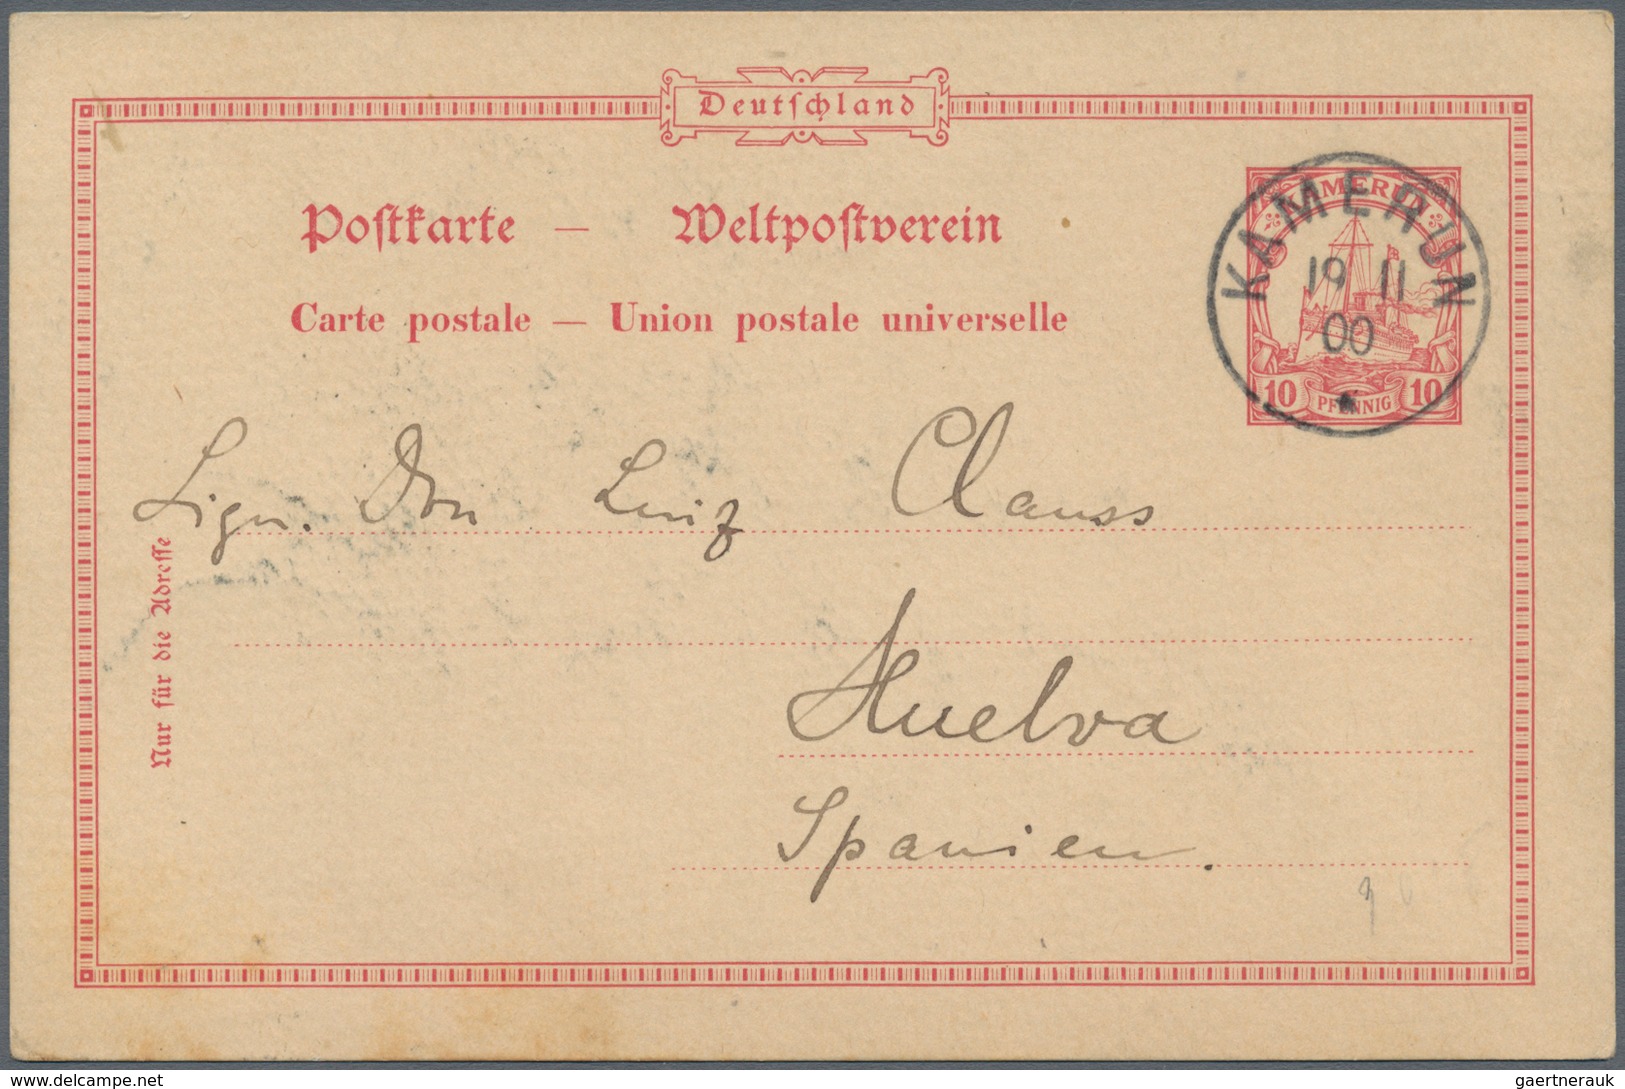 Deutschland
Postkarte — Weltpostverein
Carte postale — Union postale universelle
KAMERUN
10 PFENNIG 10
KAMERUN
19 11
00
Sign. Don Luiz Clauss
Huelva
Spanien.
Nur für die Adresse
www.delcampe.net
gaertnerauk